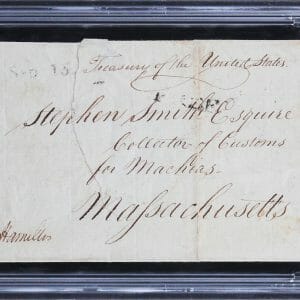 Treasury of the United States.
Stephen Smith Esquire
Collector of Customs
for Machias.
Maſsachusetts